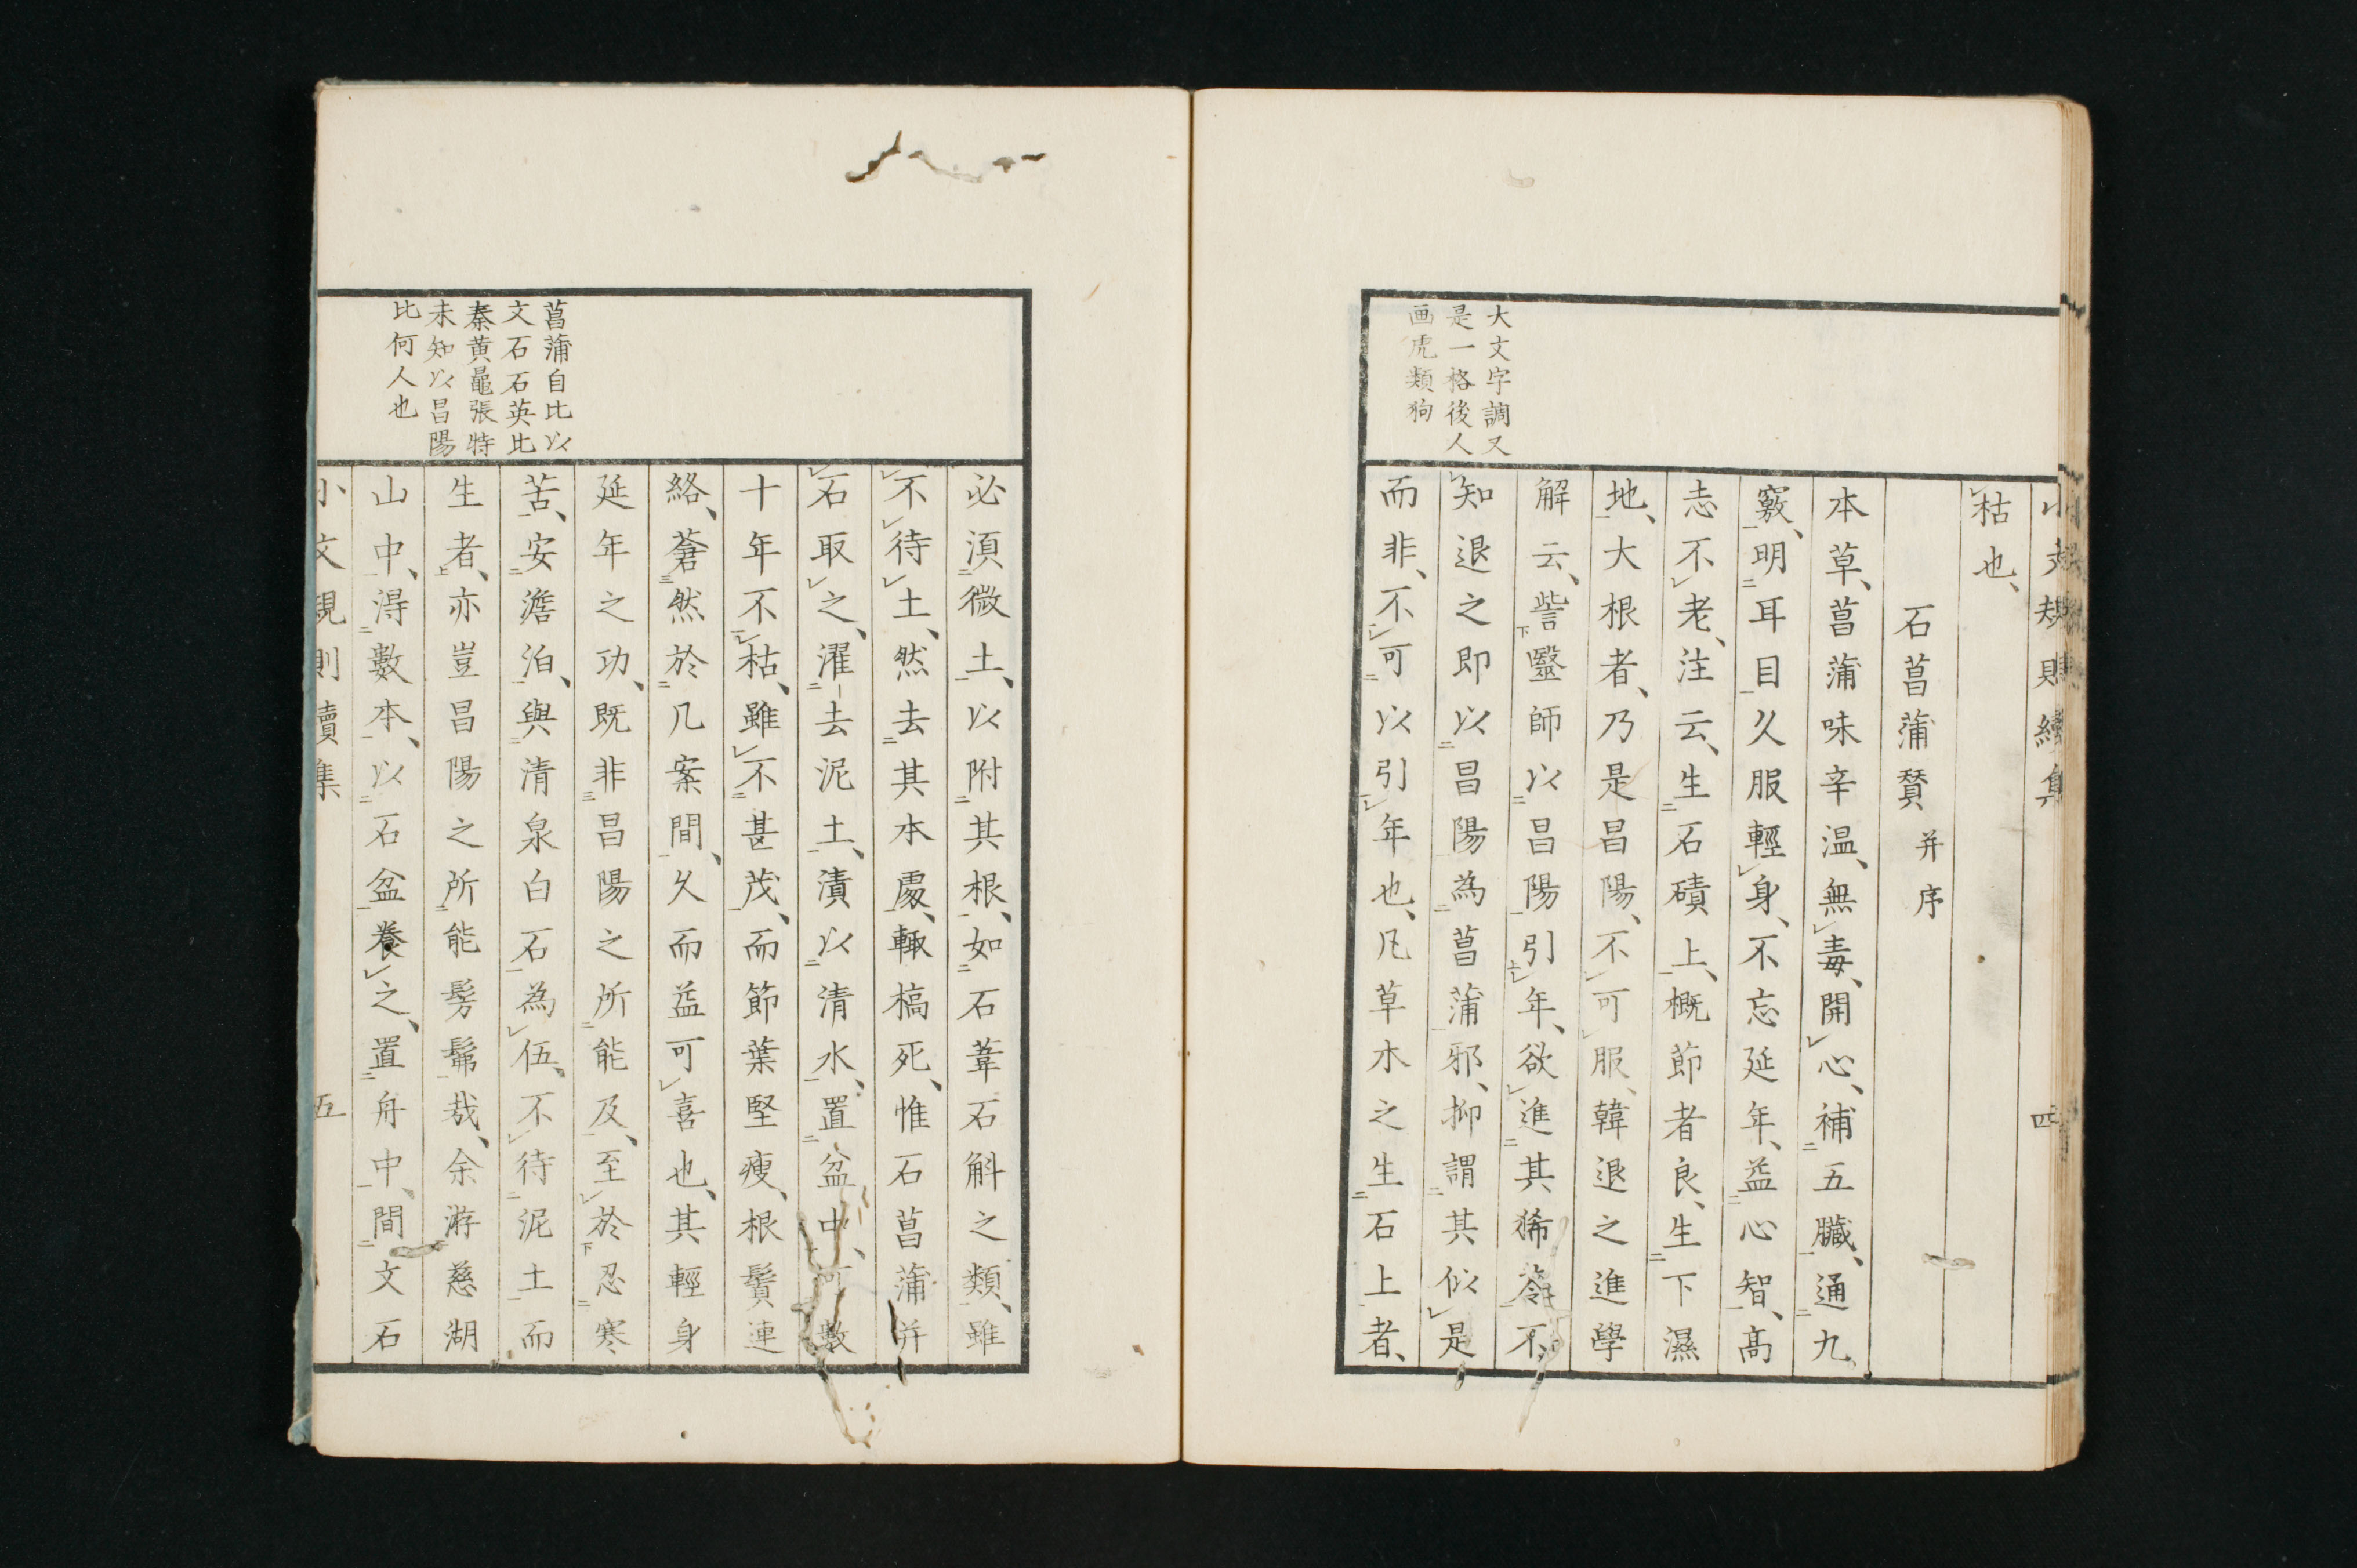 大文字調又
是一格後人
画虎類狗
枯也、
石菖蒲賛 并序
本草、菖蒲味辛温、無毒、開心、補五臓、通九
竅、明耳目久服輕身、不忘延年、益心智、高
志不老、注云、生石磧上、概節者良、生下濕
地、大根者、乃是昌陽、不可服、韓退之進學
解云、訾毉師以昌陽引年、欲進其豨苓不
知退之即以昌陽為菖蒲邪、抑謂其似是
而非、不可以引年也、凡草木之生石上者、
四
菖蒲自比以
文石石英比
秦黄鼂張特
未知以昌陽
比何人也
必須微土、以附其根、如石葦石斛之類、雖
不待土、然去其本處、輙槁死、惟石菖蒲并
石取之、濯去泥土、漬以清水、置盆中、可數
十年不枯、雖不甚茂、而節葉堅瘦、根鬚連
絡、蒼然於几案間、久而益可喜也、其輕身
延年之功、既非昌陽之所能及、至於忍寒
苦、安澹泊、與清泉白石為伍、不待泥土而
生者、亦豈昌陽之所能髣髴哉、余游慈湖
山中、得數本、以石盆養之、置舟中、間文石
小文規則續集 五